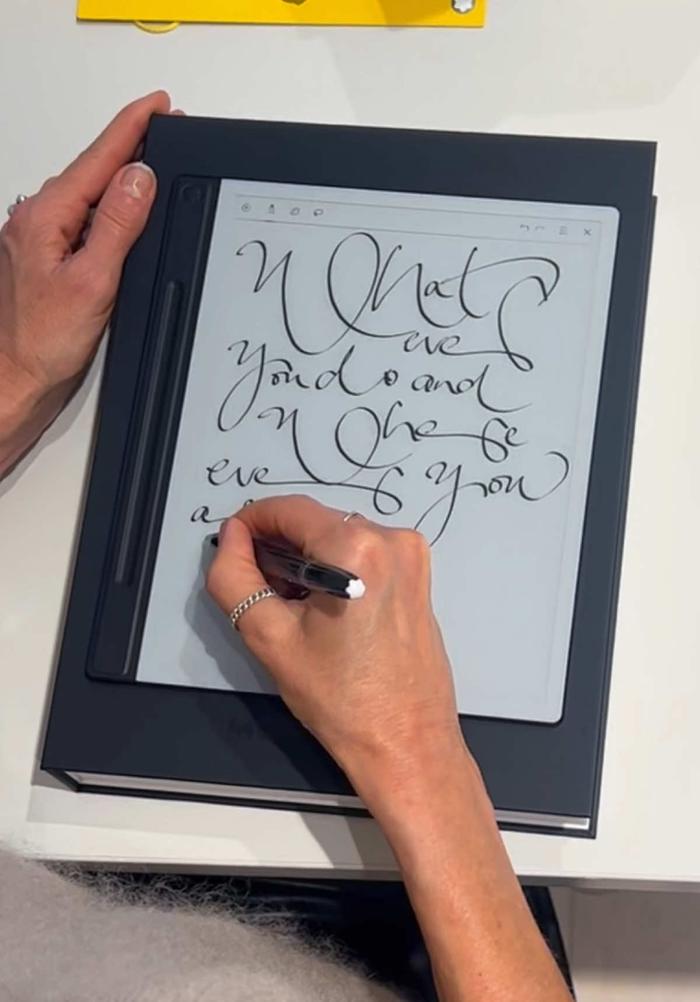 What
ever
you do and
Where
ever you
a